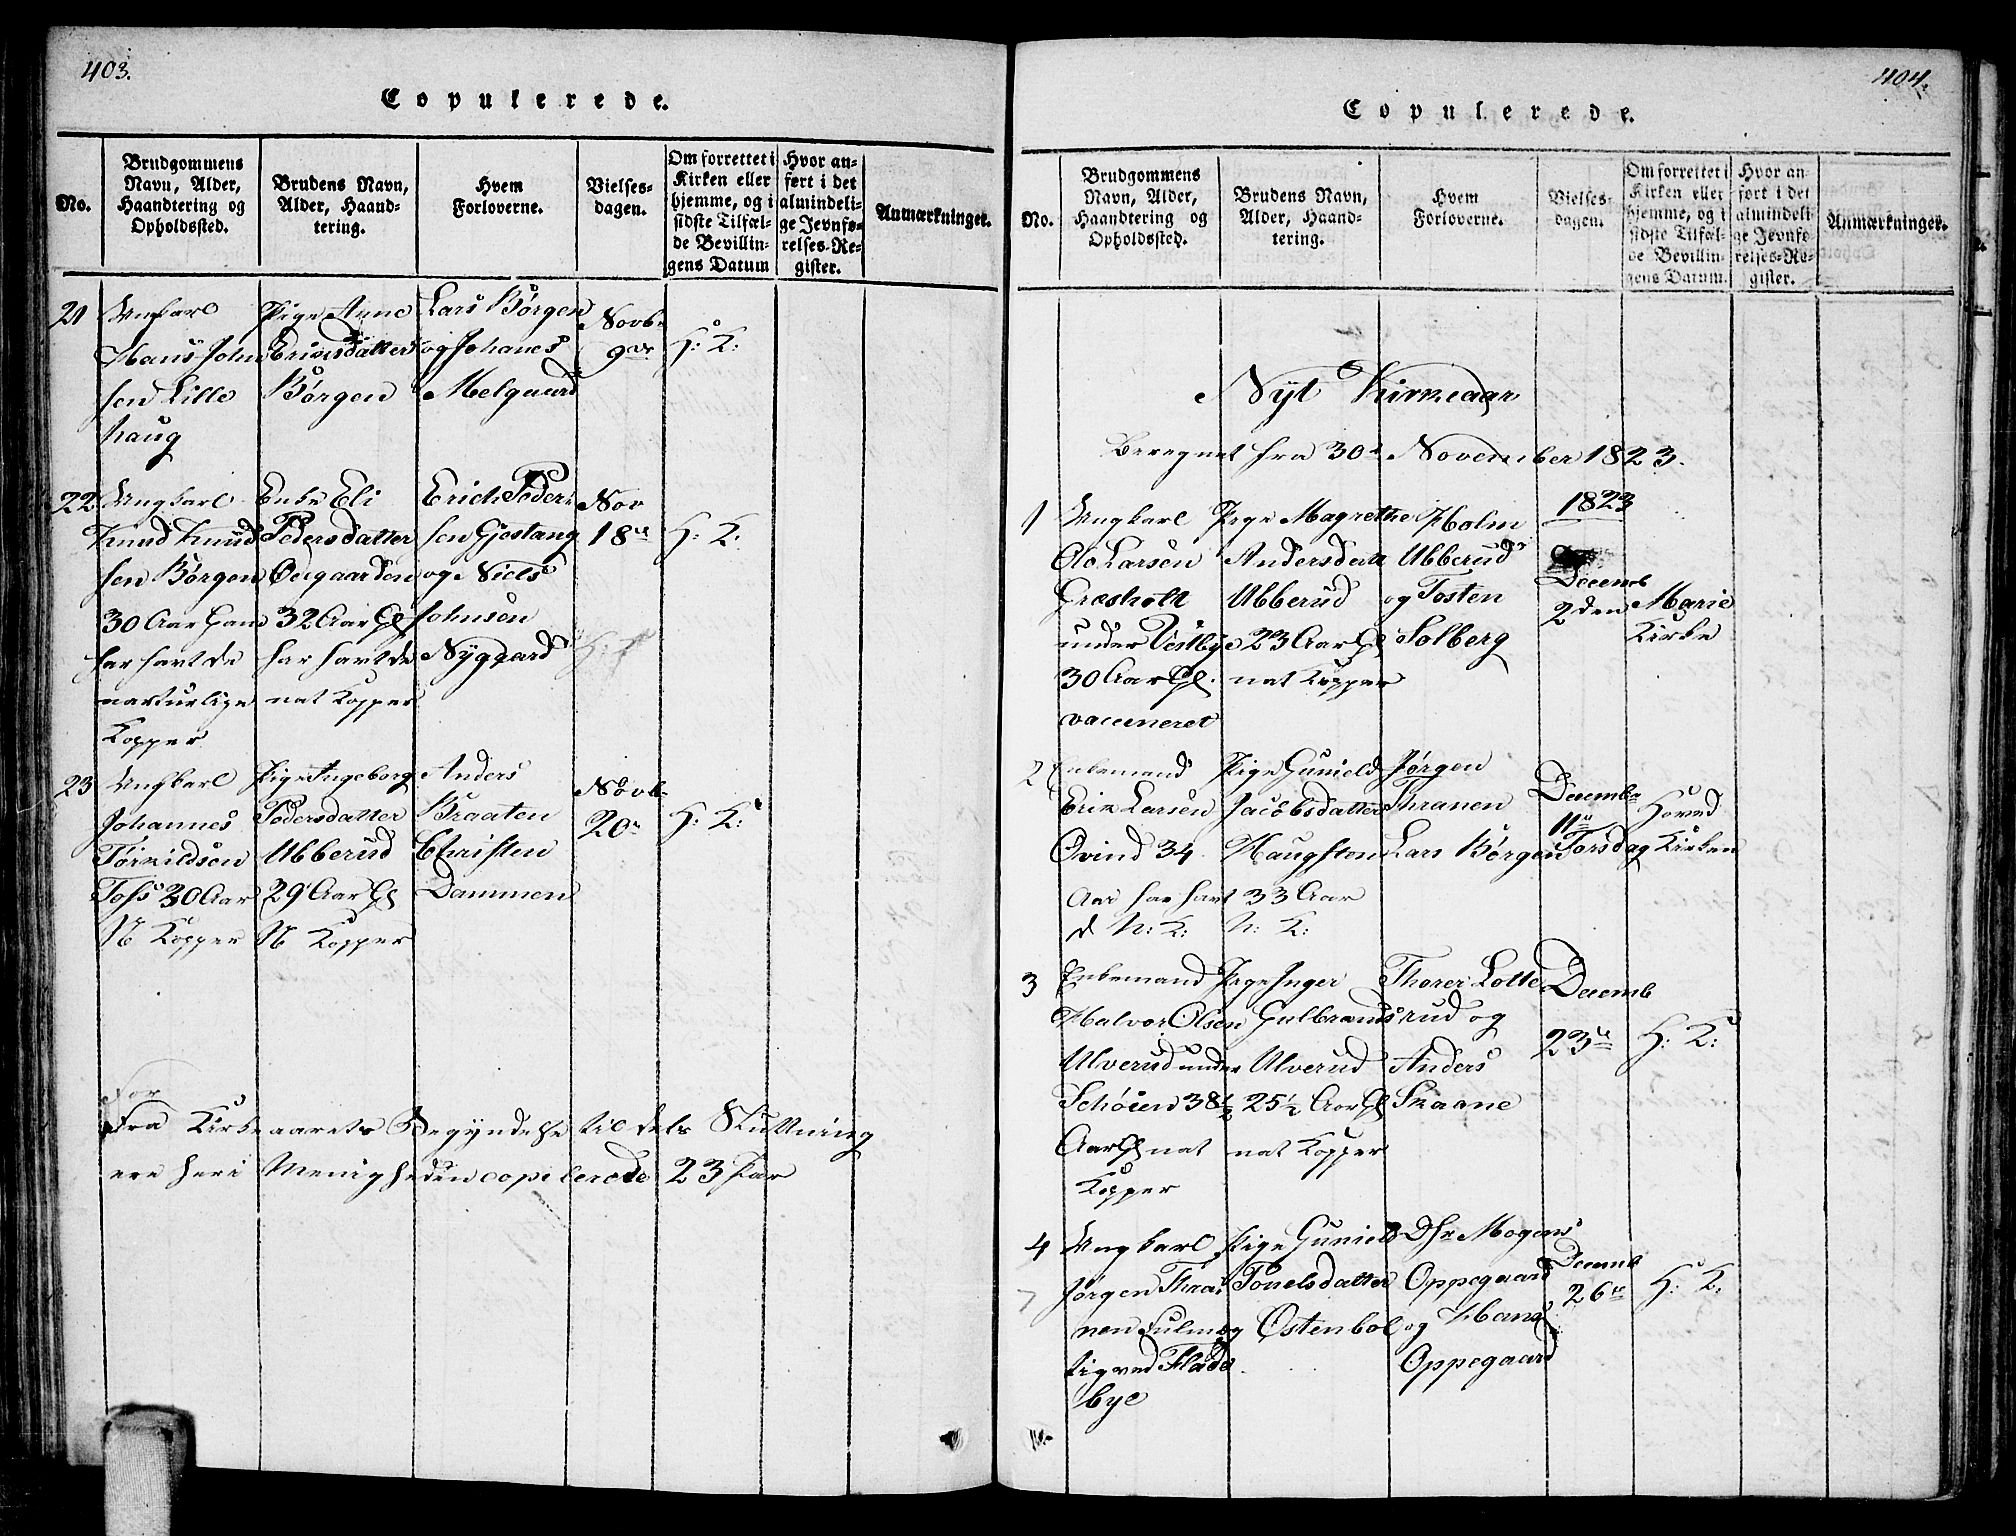 403.
Copulerede.
No.
Brudgommens Navn, Alder, Haandtering og Opholdssted.
Brudens Navn, Alder, Haand-tering.
Hvem Forloverne.
Vielses-dagen.
Om forrettet i Kirken eller hjemme, og i sidste Tilfæl-de Bevillin-gens Datum
Hvor an-ført i det almindeli-ge Jevnfø-relses-Re-gister.
Anmærkninger.
21
Ungkarl
Hans John
sen Lille
haug
Pige Anne
Ericsdatter
Børgen
Lars Børgen
og Johanes
Melgaard
Novb.
9de
H: K:
22
Ungkarl
Knud Knud
sen Børgen
30 Aar Gam
har havt de
naturlige
Kopper
Enke Eli
Pedersdatter
Øegaarden
32 Aar Gl
har havt de
nat Kopper
Erich Peder
sen Gjestang
og Niels
Johnsen
Nygaard
Nov
18de
H: K:
23
Ungkarl
Johannes
Tørkildsen
Foss 30 Aar
N Kopper
Pige Ingeborg
Pedersdatter
Ubberud
29 Aar Gl
N Kopper
Anders
Braaten
Christen
Dammen
Novb.
20.
H: K:
For
Fra Kirkeaarets Begyndelse til dets Sluttning
ere heri Menigheden copulerede 23 Par
404.
Copulerede.
No.
Brudgommens Navn, Alder, Haandtering og Opholdssted.
Brudens Navn, Alder, Haand-tering.
Hvem Forloverne.
Vielses-dagen.
Om forrettet i Kirken eller hjemme, og i sidste Tilfæl-de Bevillin-gens Datum.
Hvor an-ført i det almindeli-ge Jevnfø-relses-Re-gister.
Anmærkninger.
Nyt Kirkeaar
Beregnet fra 30t November 1823.
1
Ungkarl
Ole Larsen
Græsholt
under Vestbye
30 Aar Gl.
vaccineret
Pige Magrethe
Andersdatt
Ubberud
23 Aar Gl
nat Kopper
Holm
Ubberud
og Tosten
Solberg
1823
Decemb
2den
Marie
Kirke
2
Enkemand
Erik Larsen
Øvind 34
Aar har havt
d N: K:
Pige Gunield
Jacobsdatter
Haugsten
33 Aar
N: K:
Jørgen
Thranen
Lars Børgen
Decembr
11te
Torsdag
Hoved
Kirken
3
Enkemand
Halvor Olsen
Ulverud under
Schøien 38 1/2
Aar Gl nat
Kopper
Pige Inger
Gulbrands
Ulverud
25 1/2 Aar Gl
nat Kopper
Thorer Lotte
rud og
Anders
Skaane
Decemb
23de
H: K:
4
Ungkarl
Jørgen Thra
nen
tig ved Flade
bye
Pige Gunield
Pouelsdatter
Østenbol
Dhr Mogens
Oppegaard
og Hans
Oppegaard
Decemb
26de
H: K: